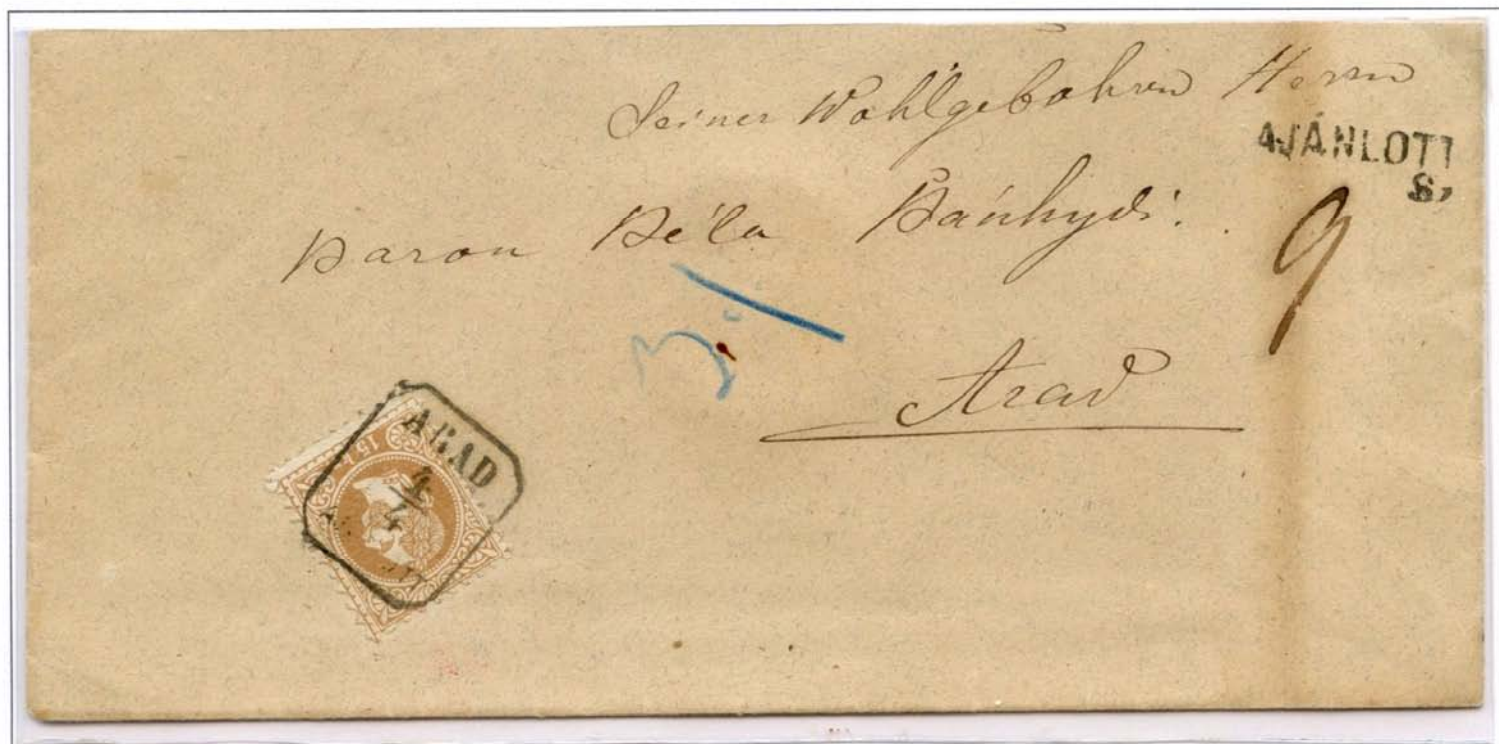 Seiner Wohlgebohren Herrn
AJÁNLOTT
S.
Baron Béla Bánhydi.
9
3.
Arad
ARAD
4/4
15 kr